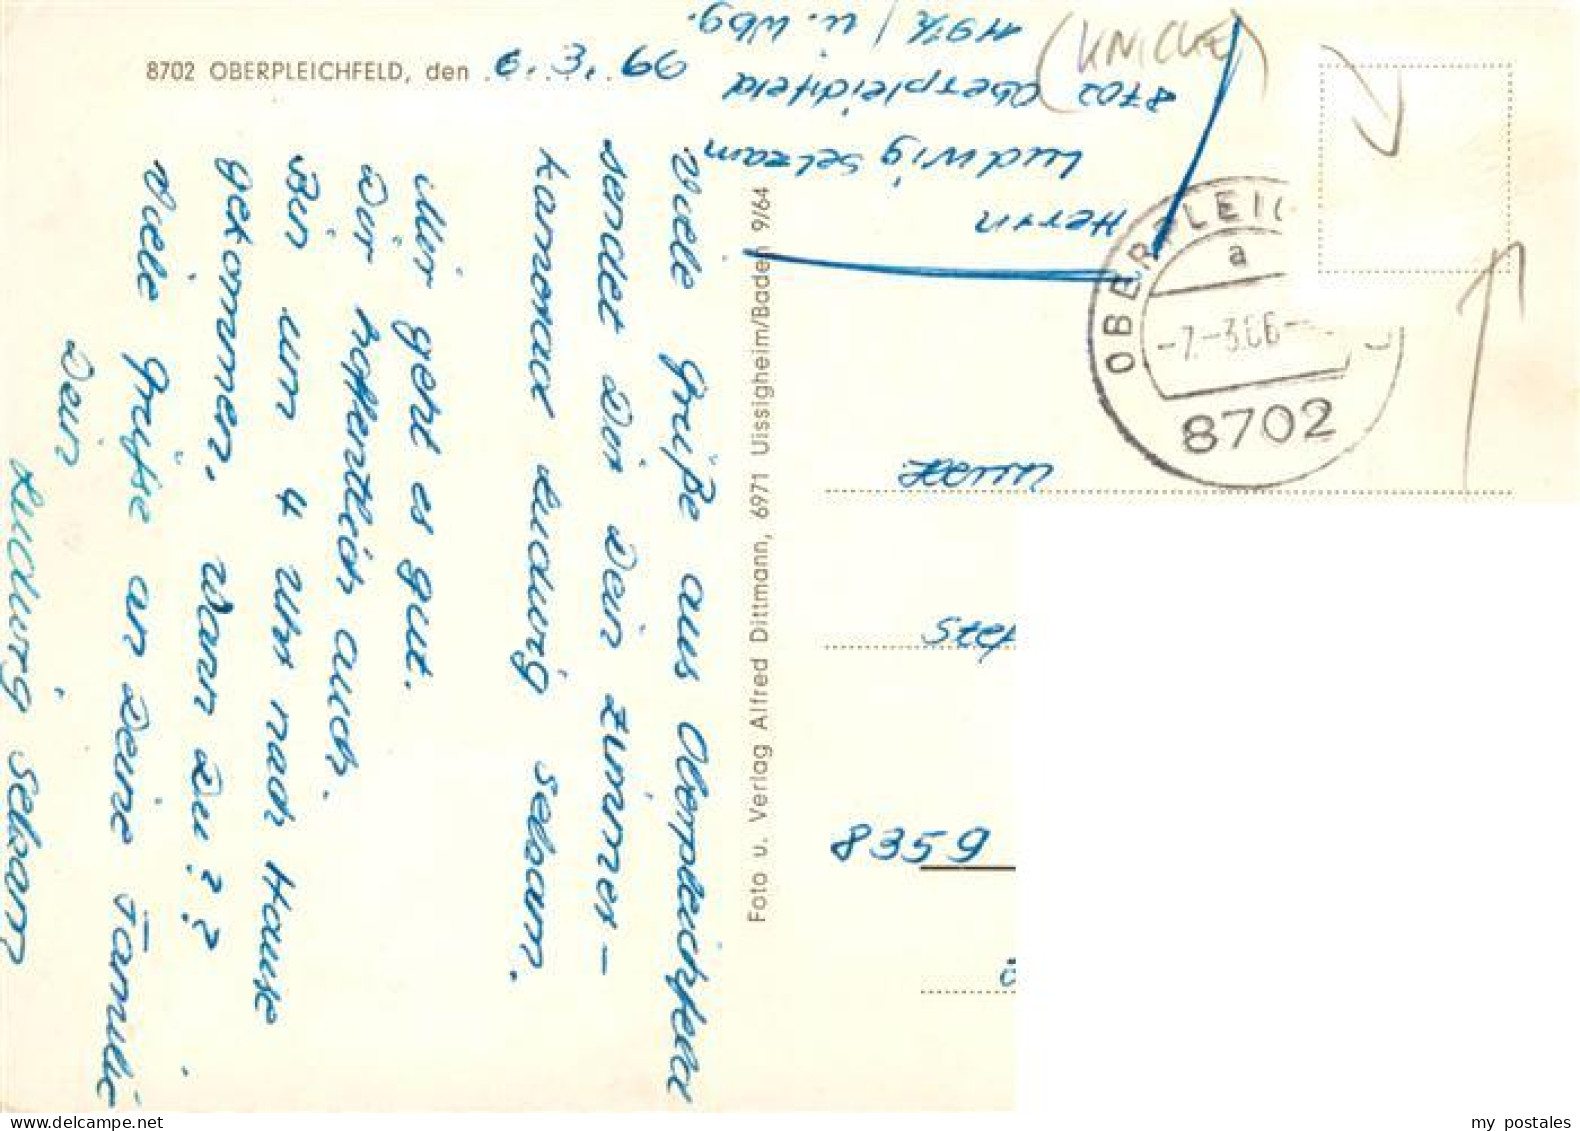 8702 OBERPLEICHFELD, den 6.3.66
Viele Grüße aus Oberpleichfeld
sendet Dir Dein Zimmer-
kamerad Ludwig Selzam.
Mir geht es gut.
Dir hoffentlich auch.
Bin um 4 Uhr nach Hause
gekommen. Wann Du??
Viele Grüße an Deine Familie
Dein
Ludwig Selzam
Foto u. Verlag Alfred Dittmann, 6971 Uissigheim/Baden 9/64
Herrn
Ludwig Selzam
8702 Oberpleichfeld
119½ / ü. Wbg.
(KNICKE)
OBERPLEIC
a
-7.-3.66-
8702
8359
my postales